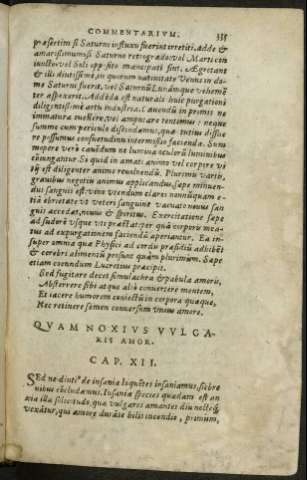 COMMENTARIVM. 335
præsertim si Saturni influxu fuerint irretiti. adde &
amarissimum si Saturno retrogrado, vel Marti con
iuncto, vel Soli opposito mancipati sint. Aegrotant
& illi diutissimè in quorum natiuitate Venus in do-
mo Saturni fuerit, vel Saturnũ Lunámque vehemẽ
ter aspexerit. Addẽda est naturali huic purgationi
diligentissimè artis industria. Cauendũ in primis ne
immatura vellere, vel amputare tentemus: neque
summo cum periculo discindamus, quæ tutius dissue
re possumus. consuetudinis intermissio facienda. Sum
mopere verò cauẽdum ne lumina oculorũ luminibus
coniungantur. Si quid in amati animo vel corpore vi
tij est diligenter animo reuoluendũ. Plurimis variis,
grauibus negotiis animus applicandus. sæpe minuen-
dus sanguis est. vino vtendum claro: nonnũquam e-
tiã ebrietate vt veteri sanguine vacuato nouus san
guis accedat, nouus & spiritus. Exercitatione sæpe
ad sudorẽ vsque vti præstat, per quã corporis mea-
tus ad expurgationem faciendã aperiantur. Ea in-
super omnia quæ Physici ad cordis præsidiũ adhibẽt
& cerebri alimentũ prosunt quàm plurimùm. Sæpe
etiam coeundum Lucretius præcipit.
Sed fugitare decet simulachra & pabula amoris,
Absterrere sibi atque aliò conuertere mentem,
Et iacere humorem coniectũ in corpora quæque,
Nec retinere semen conuersum vnius amore.
QVAM NOXIVS VVLGA-
RIS AMOR.
CAP. XII.
SEd ne diutiꝰ de insania loquẽtes insaniamus, sic bre
uibus cõcludamus. Insaniæ species quædam est an
xia illa solicitudo, qua vulgares amantes diu noctéq;
vexãtur, qui amore durãte bilis incendio, primùm,